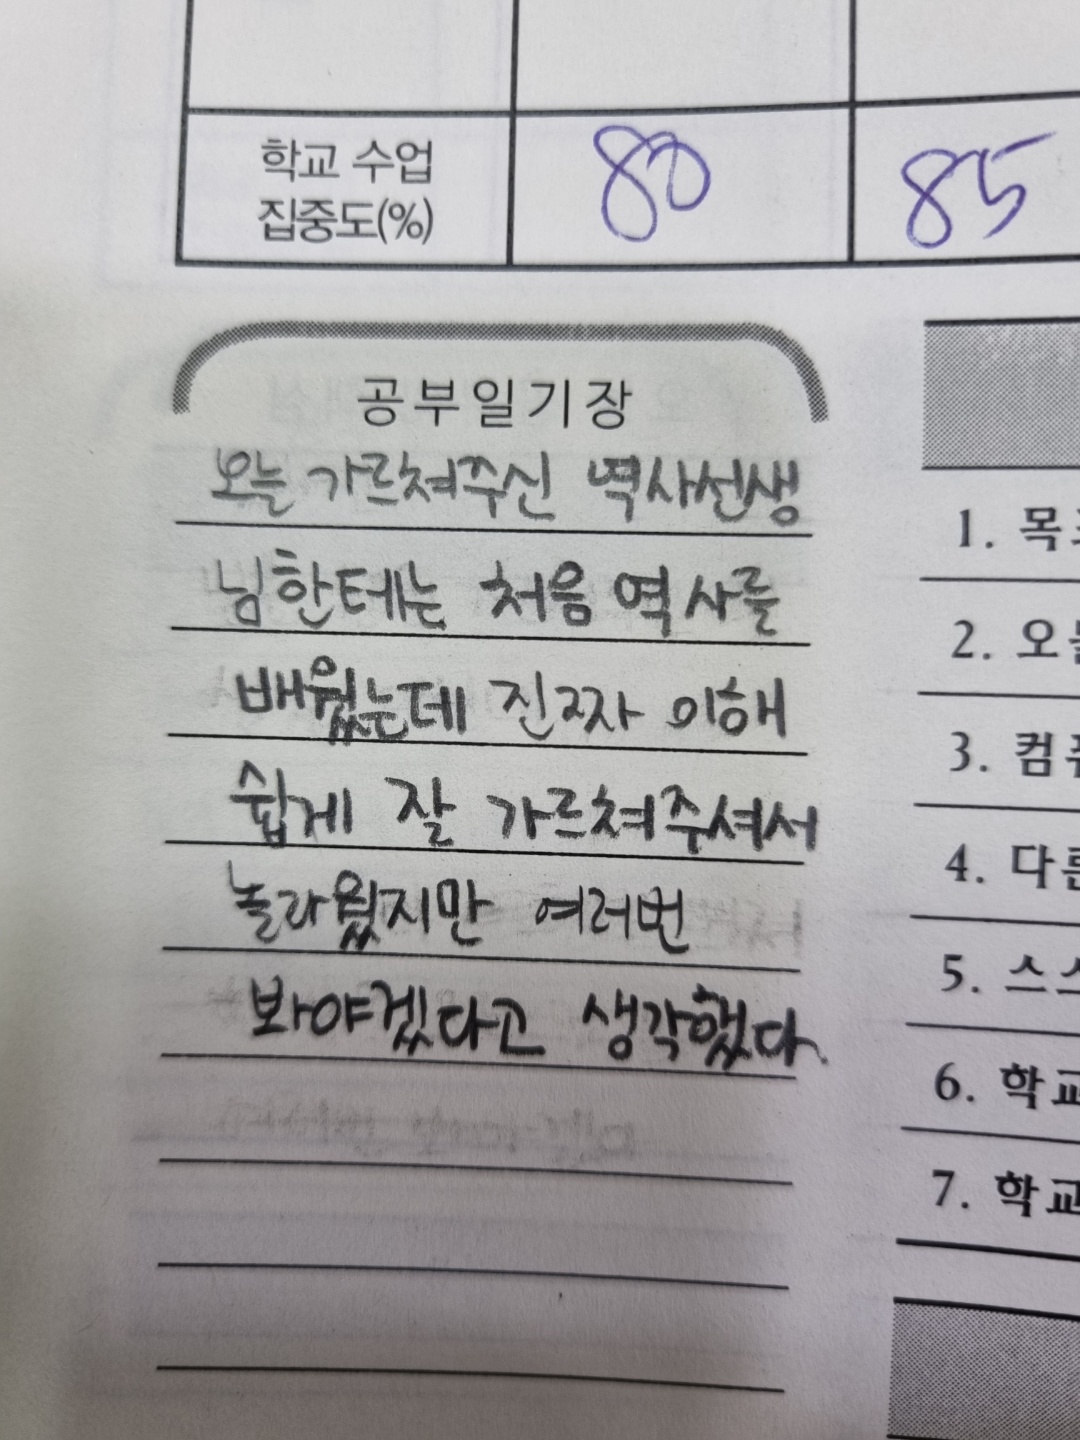 학교 수업
집중도(%)
80
85
공부일기장
오늘 가르쳐주신 역사선생
님한테는 처음 역사를
배웠는데 진짜 이해
쉽게 잘 가르쳐주셔서
놀라웠지만 여러번
봐야겠다고 생각했다.
1. 목
2. 오
3. 컴
4. 다른
5. 스스
6. 학교
7. 학교